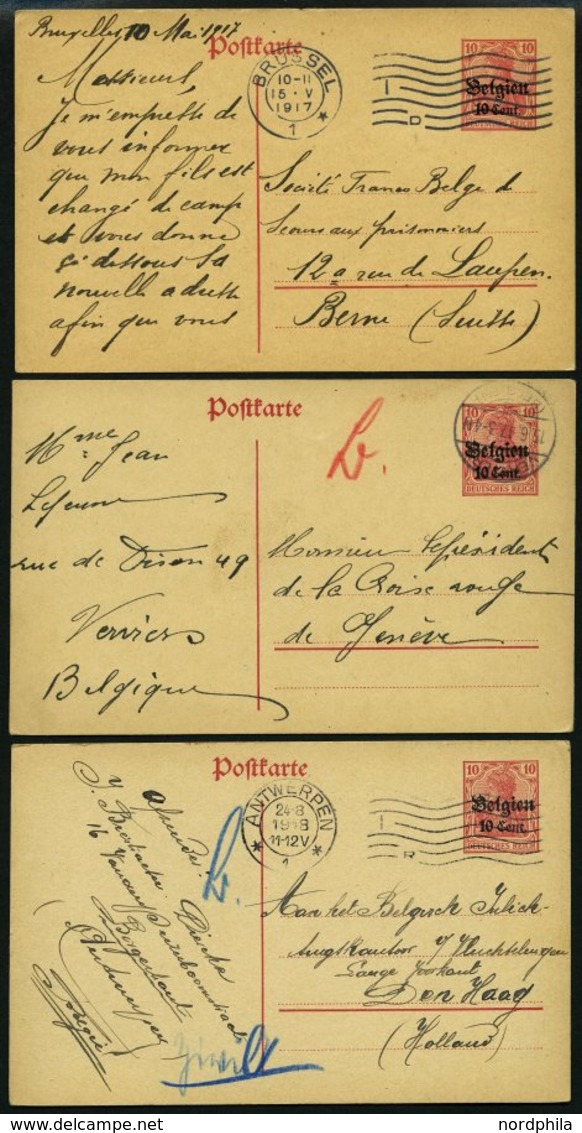 Bruxelles 10 Mai 1917
Postkarte
BRÜSSEL
10-11
15. V
1917
1
I
D
10 10
Belgien
10 Cent.
DEUTSCHES REICH
Messieurs,
Je m'empresse de
vous informer
que mon fils est
changé de camp
et vous donne
ci dessous sa
nouvelle adresse
afin que vous
Société Franco Belge de
Secours aux prisonniers
12a rue de Laupen.
Berne (Suisse)
Postkarte
L.
10 10
Belgien
10 Cent.
DEUTSCHES REICH
Mme Jean
Lejeune
rue de Dison 49
Verviers
Belgique
Monsieur le président
de la Croise rouge
de Genève
Postkarte
ANTWERPEN
24.8
1918
11-12V
1
R
10 10
Belgien
10 Cent.
DEUTSCHES REICH
L.
16
Borgerhout
(Antwerpen)
België
Aan het Belgisch
Lange Voorhout
Den Haag
(Holland)
www.delcampe.net nordphila